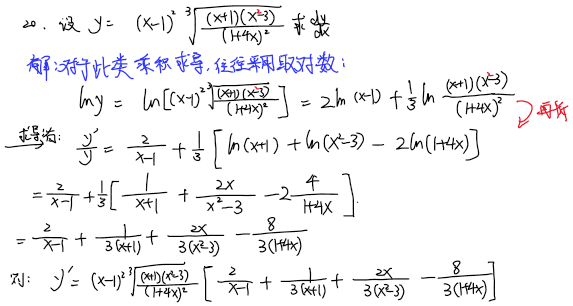 20. 设 y = (x-1)² ³√((x+1)(x²-3)/(1+4x)²) 求 dy/dx
解:对于此类乘积求导,往往采用取对数:
lny = ln[(x-1)² ³√((x+1)(x²-3)/(1+4x)²)] = 2ln(x-1) + 1/3 ln (x+1)(x²-3)/(1+4x)²
再拆
求导为: y'/y = 2/(x-1) + 1/3 [ln(x+1) + ln(x²-3) - 2ln(1+4x)]
= 2/(x-1) + 1/3 [1/(x+1) + 2x/(x²-3) - 2 4/(1+4x)].
= 2/(x-1) + 1/(3(x+1)) + 2x/(3(x²-3)) - 8/(3(1+4x))
则: y' = (x-1)² ³√((x+1)(x²-3)/(1+4x)²) [2/(x-1) + 1/(3(x+1)) + 2x/(3(x²-3)) - 8/(3(1+4x))]